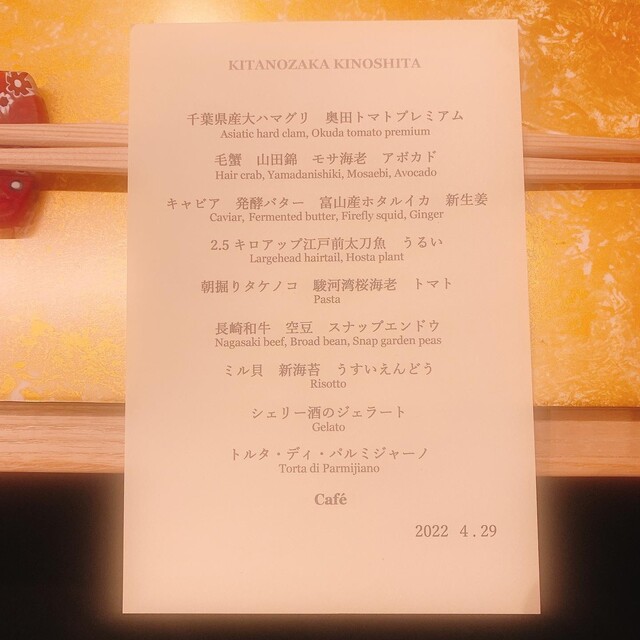 KITANOZAKA KINOSHITA
千葉県産大ハマグリ　奥田トマトプレミアム
Asiatic hard clam, Okuda tomato premium
毛蟹　山田錦　モサ海老　アボカド
Hair crab, Yamadanishiki, Mosaebi, Avocado
キャビア　発酵バター　富山産ホタルイカ　新生姜
Caviar, Fermented butter, Firefly squid, Ginger
2.5キロアップ江戸前太刀魚　うるい
Largehead hairtail, Hosta plant
朝掘りタケノコ　駿河湾桜海老　トマト
Pasta
長崎和牛　空豆　スナップエンドウ
Nagasaki beef, Broad bean, Snap garden peas
ミル貝　新海苔　うすいえんどう
Risotto
シェリー酒のジェラート
Gelato
トルタ・ディ・パルミジャーノ
Torta di Parmijiano
Café
2022 4.29